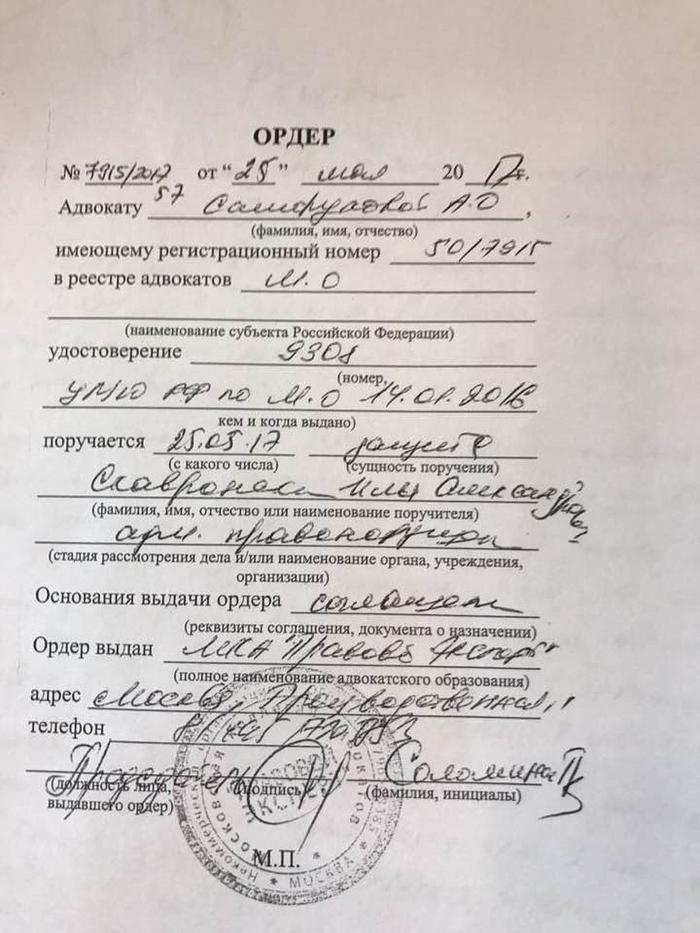 ОРДЕР
№ 7915/2017 от “25” мая 2017г.
57
Адвокату А.О,
(фамилия, имя, отчество)
имеющему регистрационный номер 50/7915
в реестре адвокатов М.О
(наименование субъекта Российской Федерации)
удостоверение 9308
(номер,
УМЮ РФ по М.О 14.01.2016
кем и когда выдано)
поручается 25.05.17 защита
(с какого числа) (сущность поручения)
Илья Александрович
(фамилия, имя, отчество или наименование поручителя)
адм.
(стадия рассмотрения дела и/или наименование органа, учреждения,
организации)
Основания выдачи ордера соглашение
(реквизиты соглашения, документа о назначении)
Ордер выдан МКА "
(полное наименование адвокатского образования)
адрес Москва,
телефон
(должность лица, (подпись) (фамилия, инициалы)
выдавшего ордер)
М.П.
МОСКВА